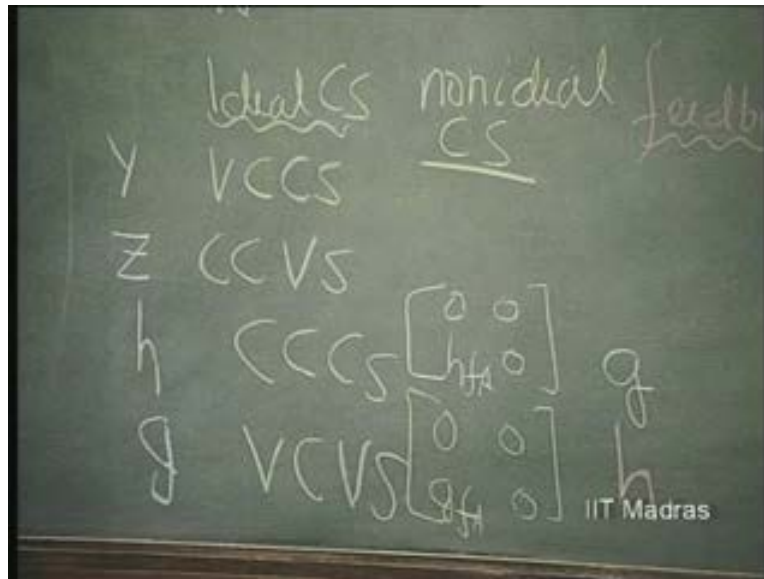 Ideal CS nonideal CS feedb
Y VCCS
Z CCVS
h CCCS [0 0 hfA 0] g
g VCVS [0 0 gfA 0] h
IIT Madras